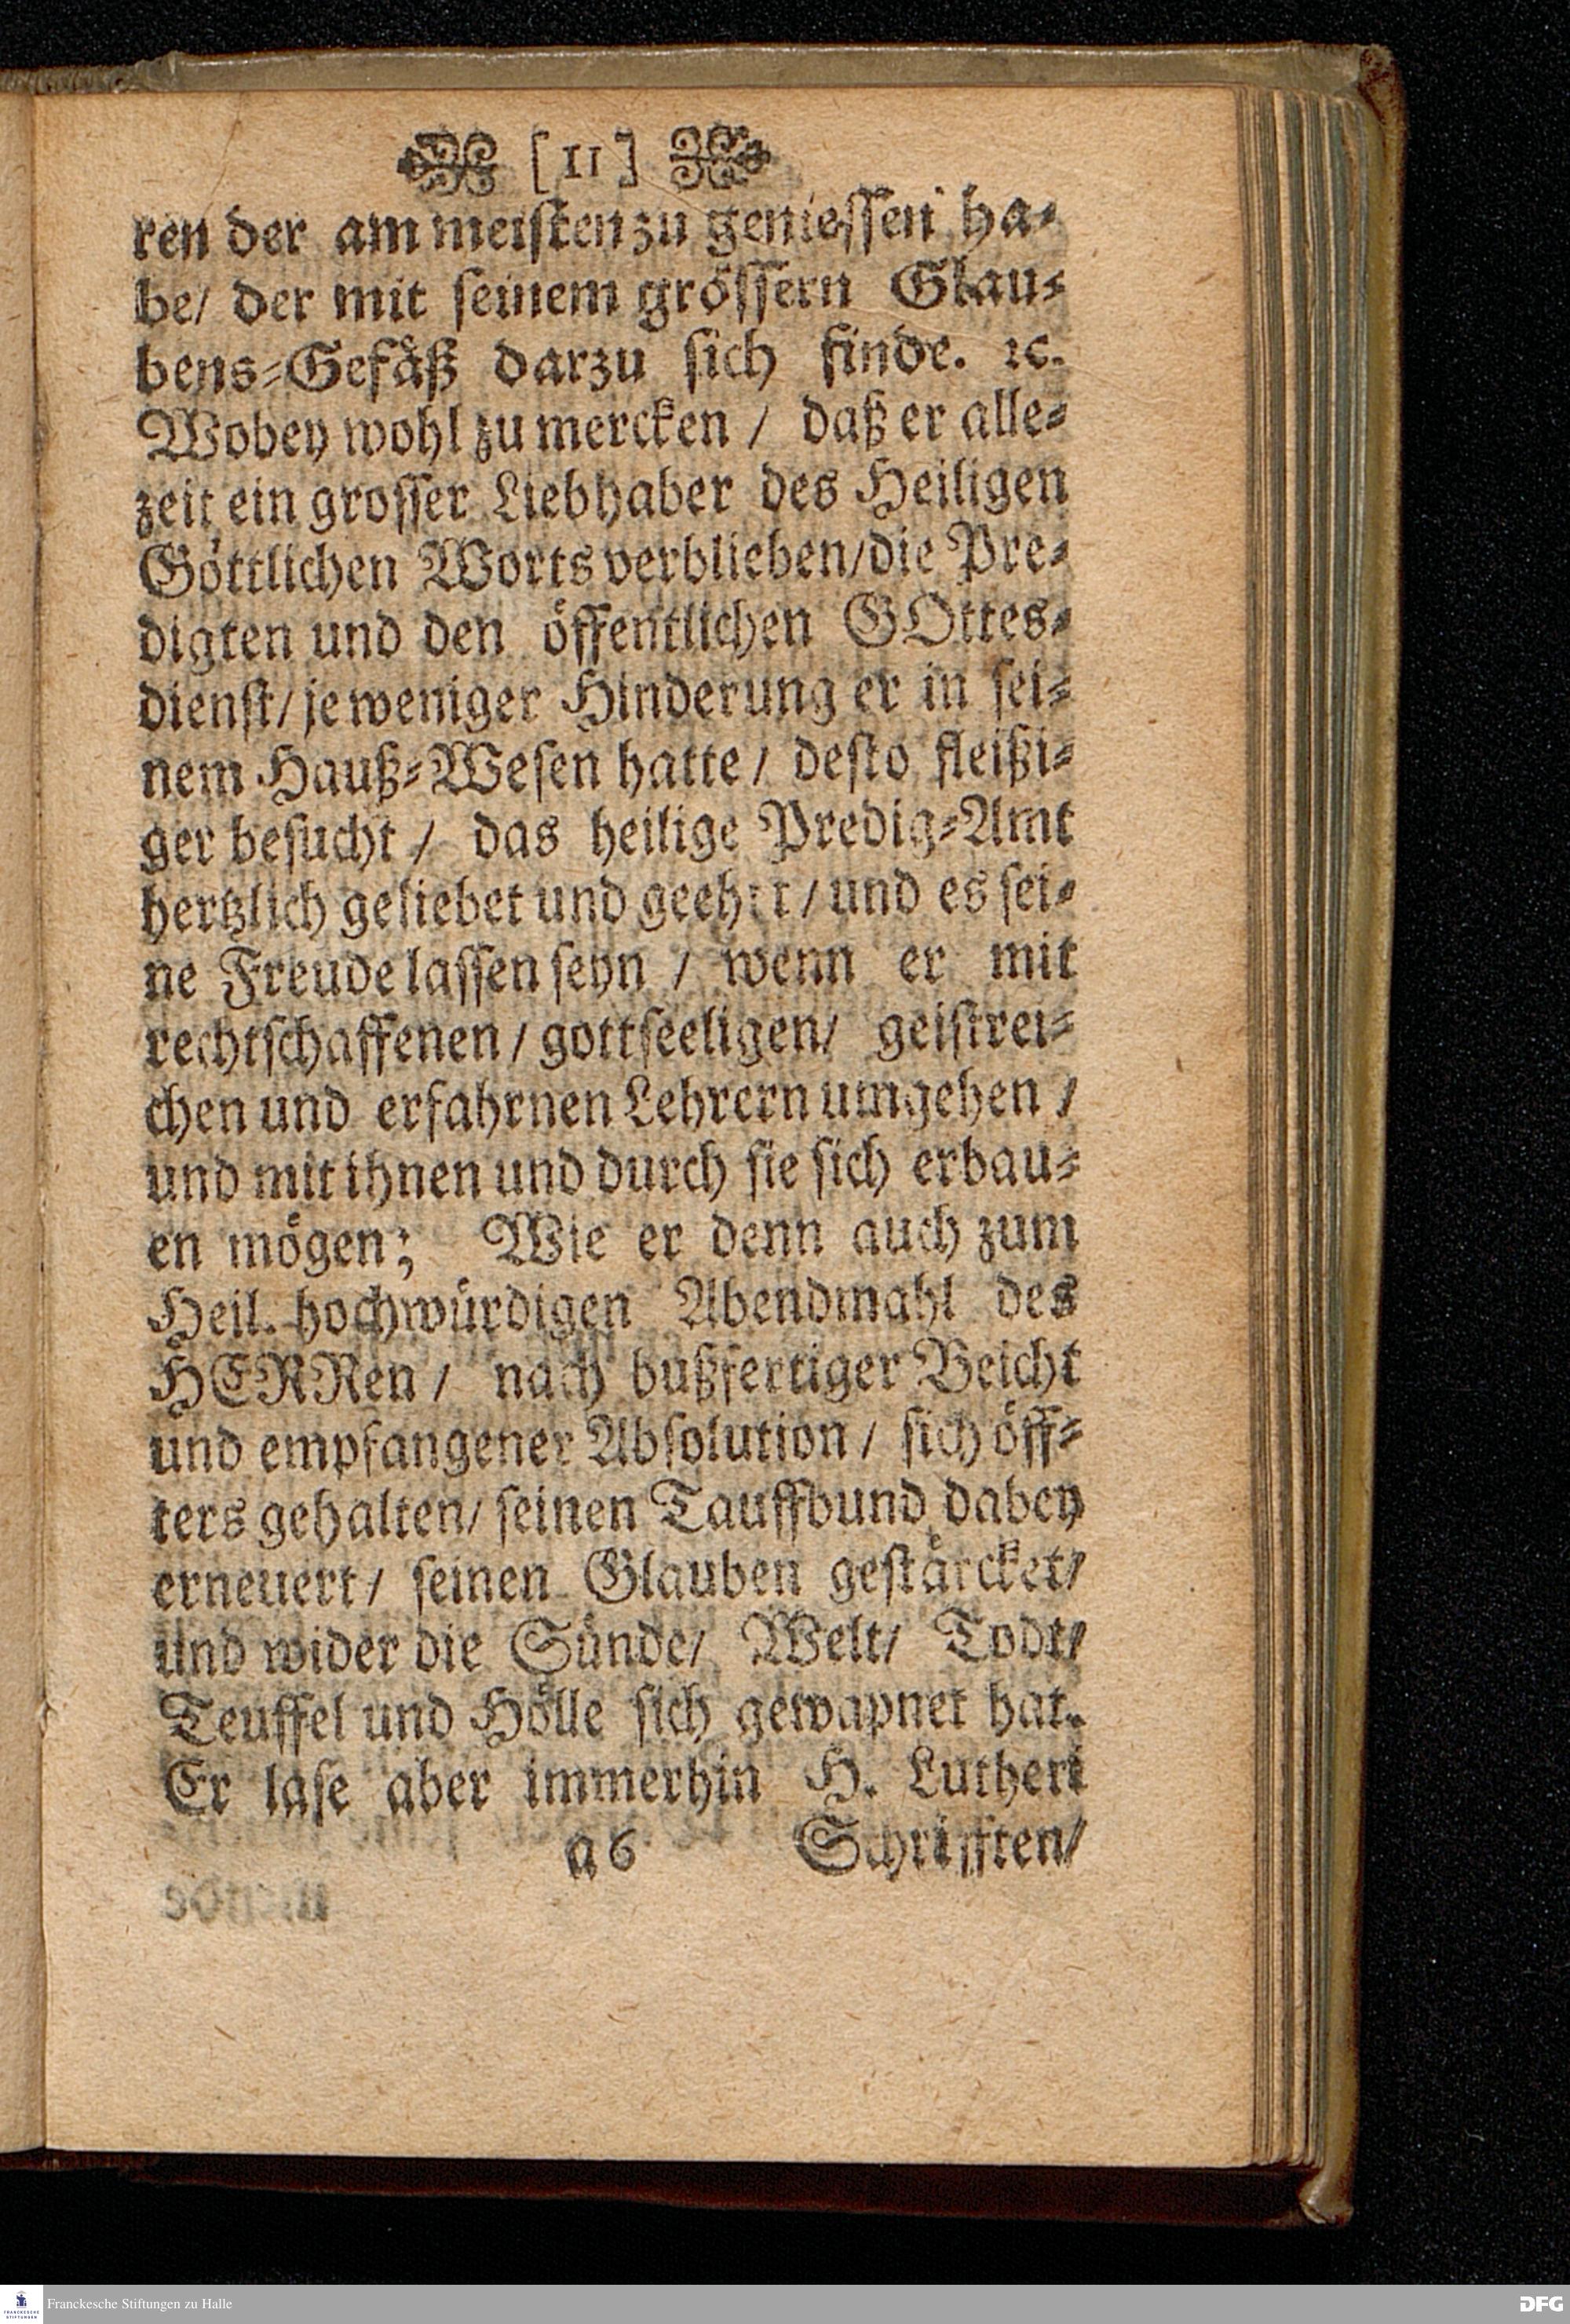 [11]
ren der am meisten zu geniessen ha-
be/ der mit seinem grössern Glau-
bens-Gefäß darzu sich finde. ꝛc.
Wobey wohl zu mercken / daß er alle-
zeit ein grosser Liebhaber des Heiligen
Göttlichen Worts verblieben/die Pre-
digten und den öffentlichen GOttes-
dienst/ je weniger Hinderung er in sei-
nem Hauß-Wesen hatte/ desto fleißi-
ger besucht / das heilige Predig-Amt
hertzlich geliebet und geehrt / und es sei-
ne Freude lassen seyn / wenn er mit
rechtschaffenen / gottseeligen/ geistrei-
chen und erfahrnen Lehrern umgehen /
und mit ihnen und durch sie sich erbau-
en mögen; Wie er denn auch zum
Heil. hochwürdigen Abendmahl des
HERRen / nach bußfertiger Beicht
und empfangener Absolution / sich öff-
ters gehalten/ seinen Tauffbund dabey
erneuert / seinen Glauben gestärcket/
und wider die Sünde/ Welt/ Todt/
Teuffel und Hölle sich gewapnet hat.
Er lase aber immerhin H. Lutheri
a 6 Schrifften/
FRANCKESCHE STIFTUNGEN
Franckesche Stiftungen zu Halle
DFG